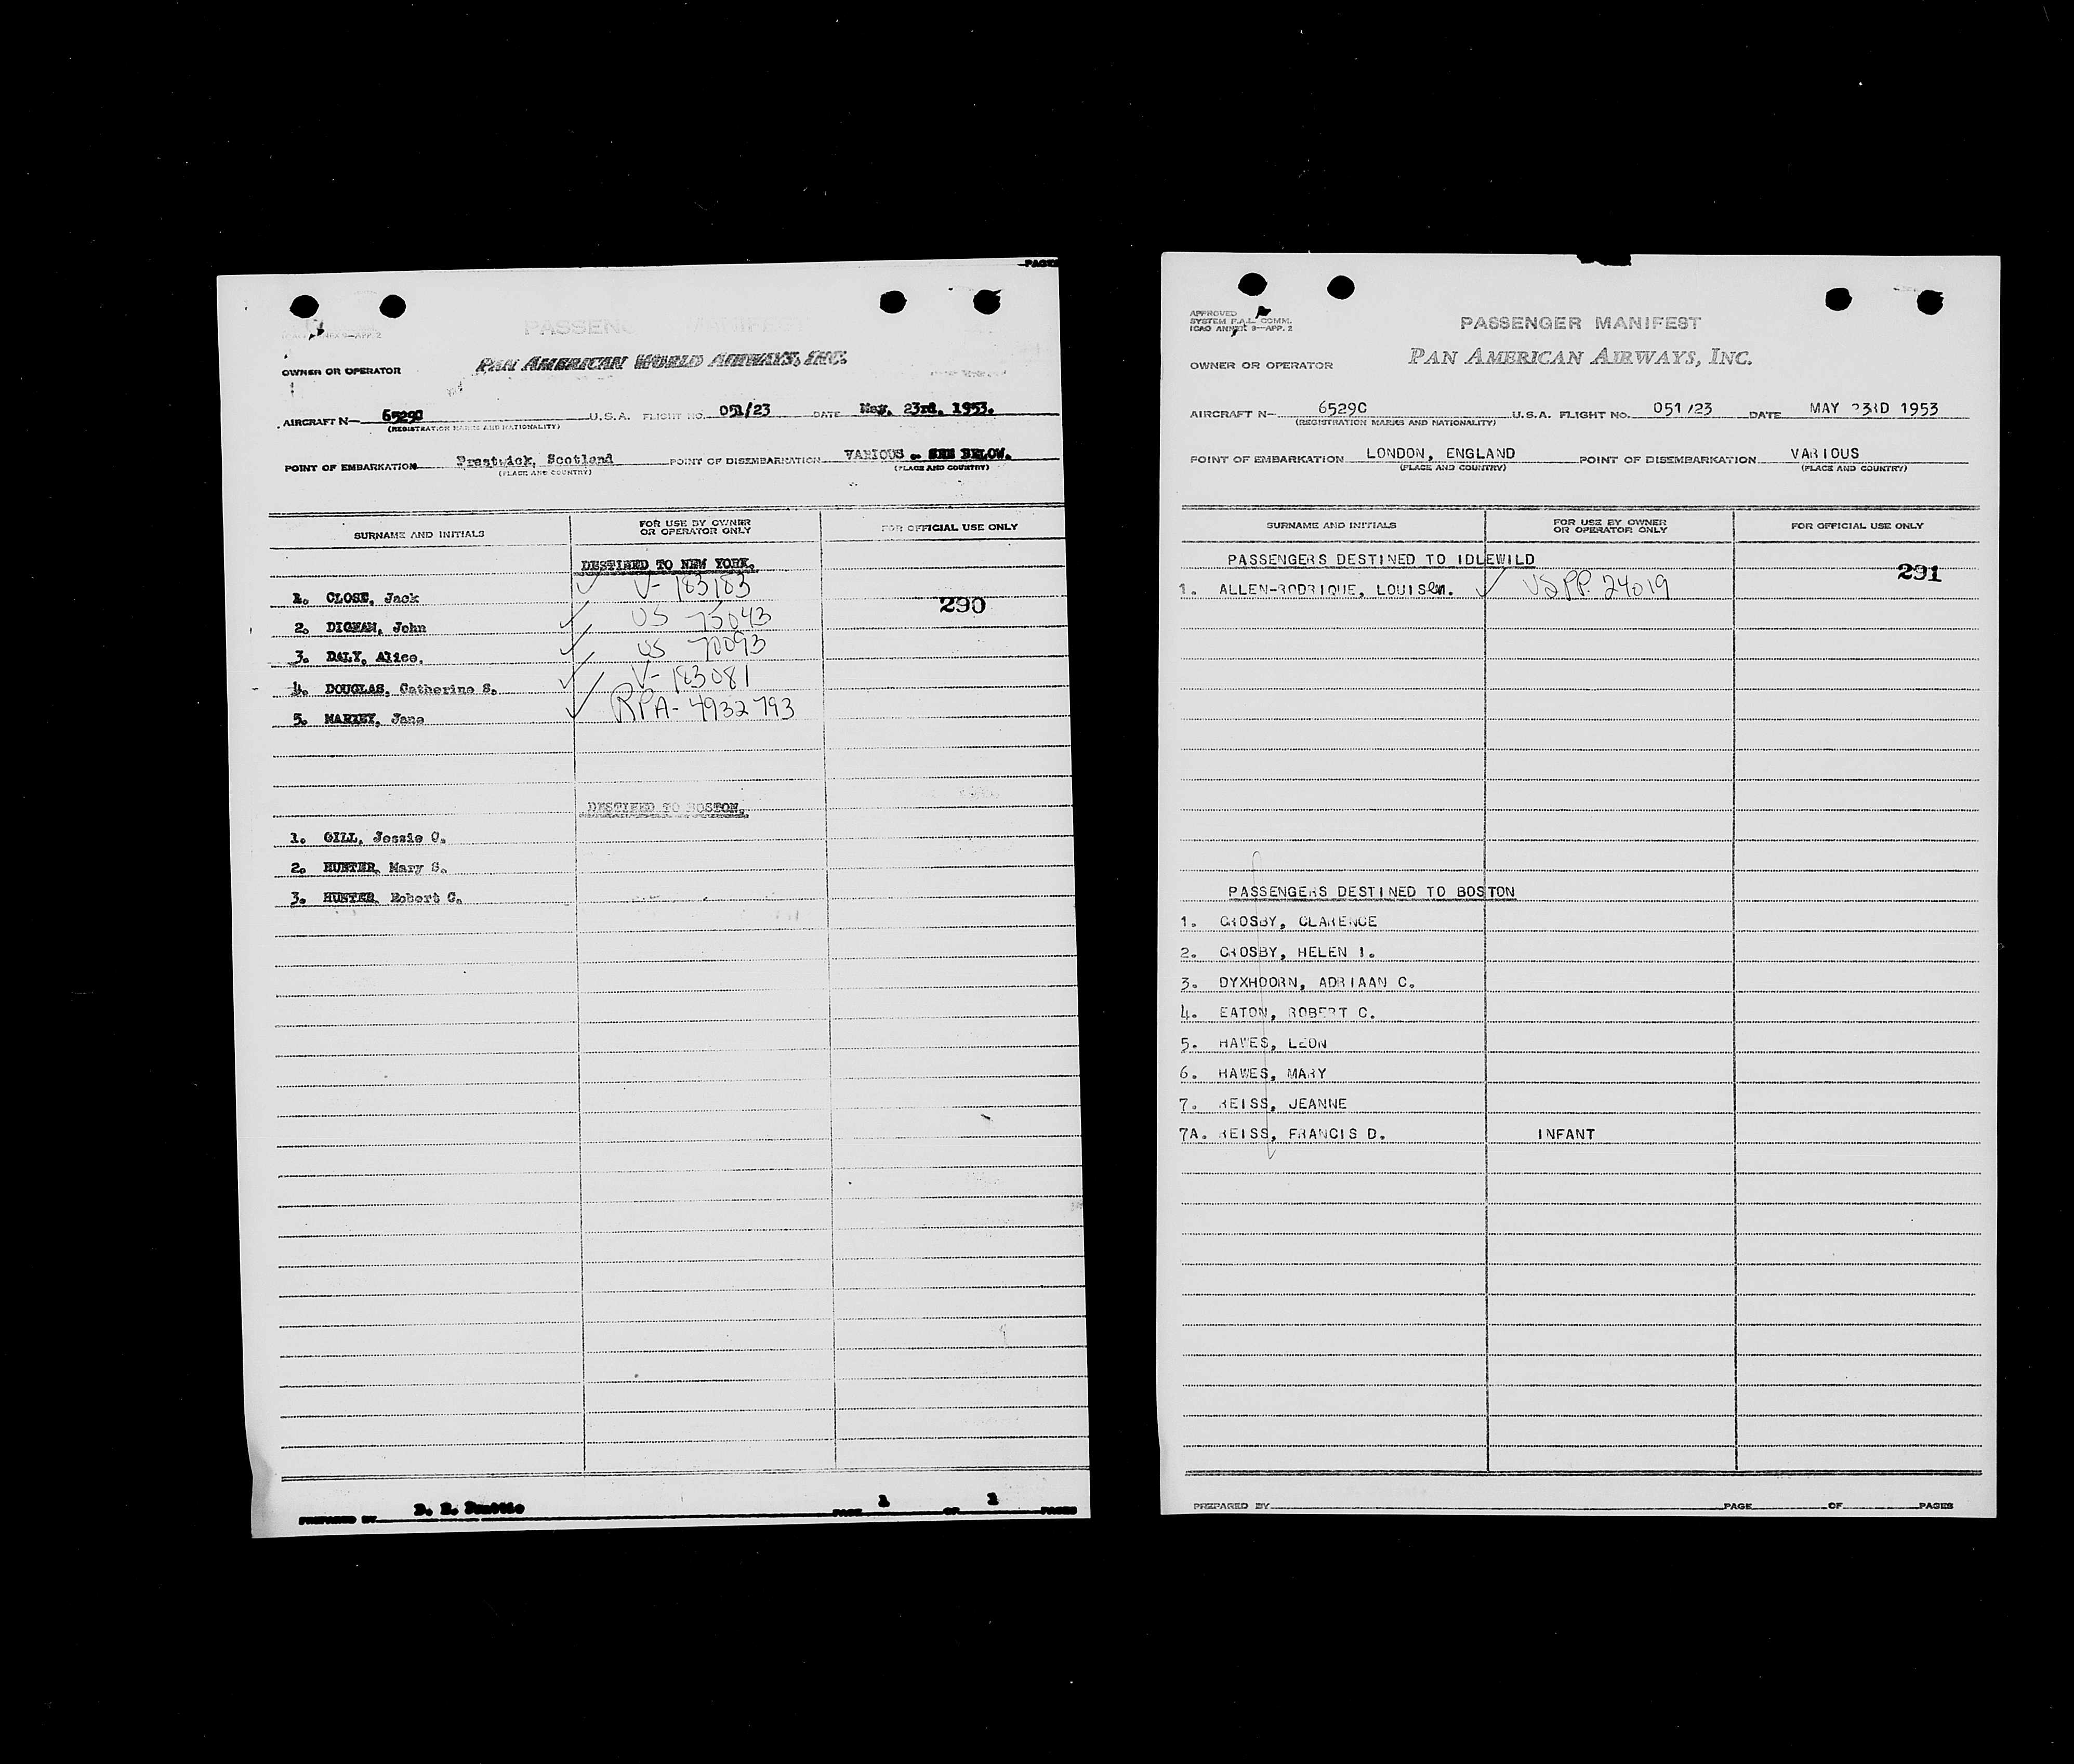 PAGES
PASSENGER MANIFEST
OWNER OR OPERATOR
PAN AMERICAN WORLD AIRWAYS, INC.
AIRCRAFT N— 6529C U.S.A. FLIGHT NO. 051/23 DATE May, 23rd, 1953.
(REGISTRATION MARKS AND NATIONALITY)
POINT OF EMBARKATION Prestwick, Scotland POINT OF DISEMBARKATION VARIOUS - SEE BELOW.
(PLACE AND COUNTRY) (PLACE AND COUNTRY)
SURNAME AND INITIALS FOR USE BY OWNER OR OPERATOR ONLY FOR OFFICIAL USE ONLY
DESTINED TO NEW YORK.
1. CLOSE, Jack ✓ V- 183183
290
2. DIGNAN, John ✓ US 75043
3. DALY, Alice. ✓ US 70093
4. DOUGLAS, Catherine S. ✓ V- 183081
5. Jane ✓ RPA- 4932793
DESTINED TO BOSTON.
1. GILL, Jessie C.
2. HUNTER, Mary S.
3. HUNTER, Robert C.
PREPARED BY D. PAGE 1 OF 1 PAGES
APPROVED
SYSTEM F.A.L. COMM.
ICAO ANNEX 9—APP. 2
PASSENGER MANIFEST
OWNER OR OPERATOR
PAN AMERICAN AIRWAYS, INC.
AIRCRAFT N— 6529C U.S.A. FLIGHT NO. 051/23 DATE MAY 23RD 1953
(REGISTRATION MARKS AND NATIONALITY)
POINT OF EMBARKATION LONDON, ENGLAND POINT OF DISEMBARKATION VARIOUS
(PLACE AND COUNTRY) (PLACE AND COUNTRY)
SURNAME AND INITIALS FOR USE BY OWNER OR OPERATOR ONLY FOR OFFICIAL USE ONLY
PASSENGERS DESTINED TO IDLEWILD
291
1. ALLEN-RODRIQUE, LOUISE M. ✓ US PP. 24019
PASSENGERS DESTINED TO BOSTON
1. CROSBY, CLARENCE
2. CROSBY, HELEN I.
3. DYXHOORN, ADRIAAN C.
4. EATON, ROBERT C.
5. HAWES, LEON
6. HAWES, MARY
7. REISS, JEANNE
7A. REISS, FRANCIS D. INFANT
PREPARED BY PAGE OF PAGES